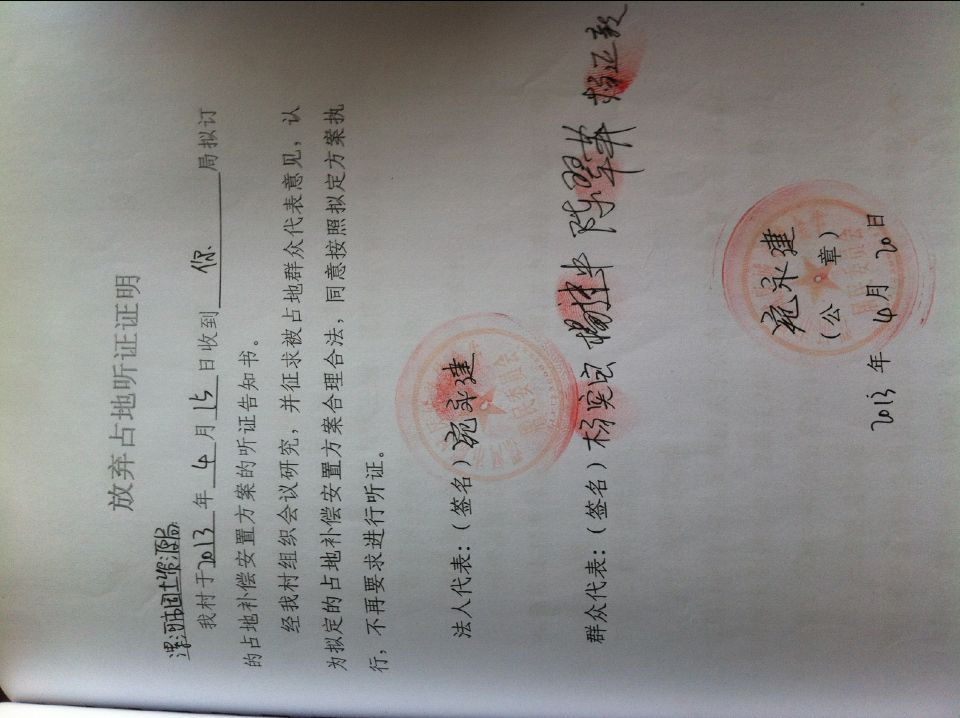 放弃占地听证证明
漯河市国土资源局
我村于2013年4月15日收到你局拟订
的占地补偿安置方案的听证告知书。
经我村组织会议研究，并征求被占地群众代表意见，认
为拟定的占地补偿安置方案合理合法，同意按照拟定方案执
行，不再要求进行听证。
法人代表：（签名）宛永建
群众代表：（签名）杨宪宝 杨建华 陈翠英 杨正毅
宛永建
（公 章）
2013年4月20日